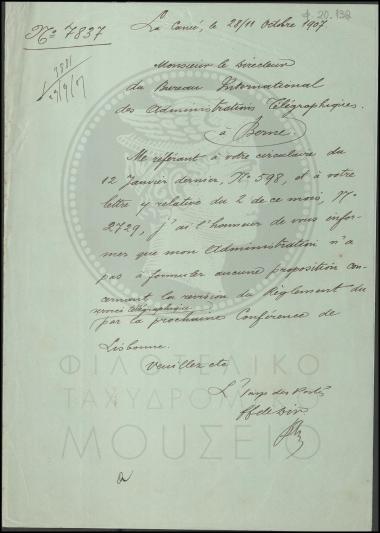 Nº 7837
La Canée, le 28/11 Octobre 1907
φ 20.132
Monsieur le Directeur
du Bureau International
des Administrations Télégraphiques.
à Berne.
Me référant à votre circulaire du
12 Janvier dernier, Nº 598, et à votre
lettre y relative du 2 de ce mois, Nº
2729, j'ai l'honneur de vous infor-
mer que mon Administration n'a
pas à formuler aucune proposition con-
cernant la revision du Règlement du
service télégraphique
par la prochaine Conférence de
Lisbonne.
Veuillez etc
L'Insp. des Postes
ff de Dir
ΦΙΛΟΤΕΛΙΚΟ
ΤΑΧΥΔΡΟΜΙΚΟ
ΜΟΥΣΕΙΟ